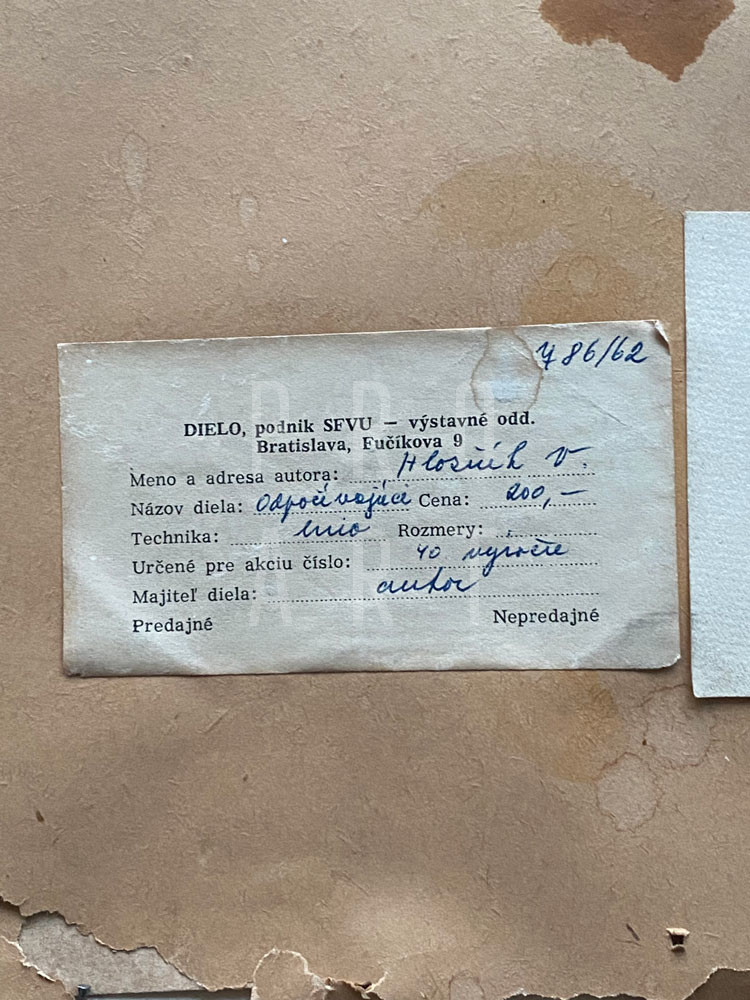 786/62
DIELO, podnik SFVU — výstavné odd.
Bratislava, Fučíkova 9
Meno a adresa autora: Hložník V.
Názov diela: Odpočívajúci Cena: 200,—
Technika: lino Rozmery:
Určené pre akciu číslo: 40 výročie
Majiteľ diela: autor
Predajné Nepredajné
PRO
ART